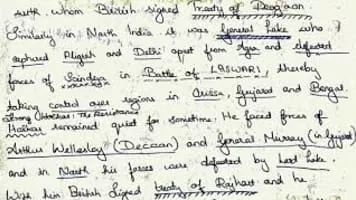 with whom British signed Treaty of Deogaon
Similarly in North India it was General Lake who
captured Aligarh and Delhi apart from Agra and defeated
forces of Scindia in Battle of LASWARI, thereby
taking control over regions in Orissa, Gujarat and Bengal.
Among Marathas: The Resistance
Holkar remained quiet for sometime. He faced forces of
Arthur Wellesley (Deccan) and General Murray (in Gujarat)
and in North his forces were defeated by Lord Lake.
With him British signed treaty of Rajhart and he